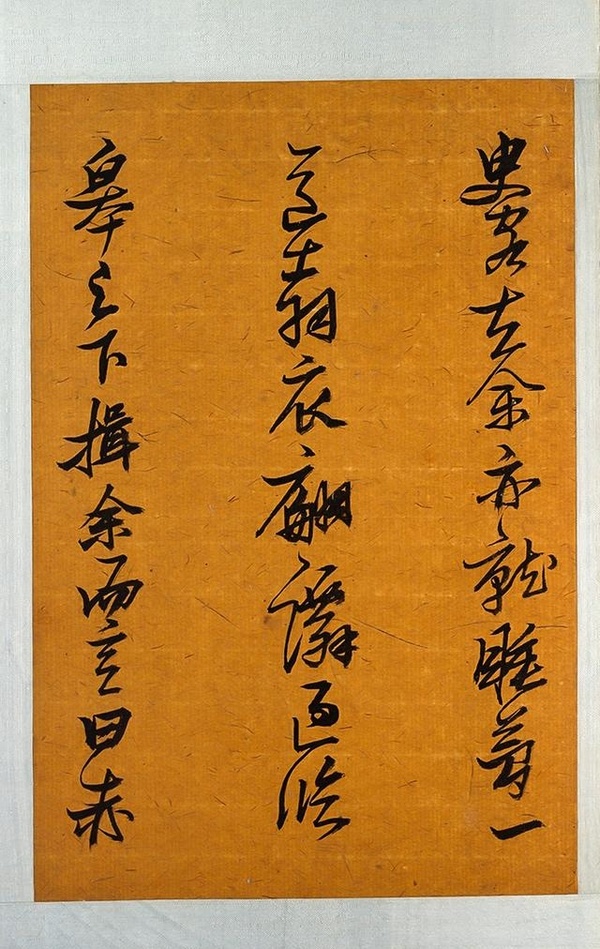 臾客去余亦就睡夢一
道士羽衣翩過臨
皋之下揖余而言曰赤